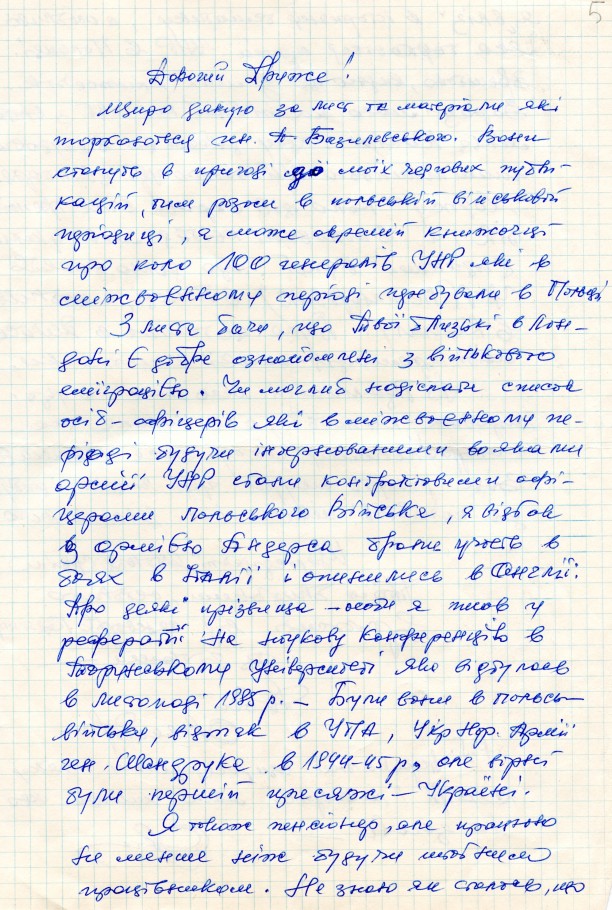 5
Дорогий Друже!
Щиро дякую за лист та матеріали які
торкаються ген. А Базилевського. Вони
стануть в пригоді до моїх чергових публі-
кацій, тим разом в польській військовій
періодиці, а може окремій книжочці
про коло 100 генералів УНР які в
міжвоєнному періоді перебували в Польщі
З листа бачу, що Твої близькі в Лон-
доні є добре ознайомлені з військовою
еміграцією. Чи могли б надіслати список
осіб - офіцерів які в міжвоєнному пе-
ріоді будучи інтернованими вояками
армії УНР стали контрактовими офі-
церами польського Війська, а відтак
з армією Андерса брали участь в
боях в Італії і опинились в Англії.
Про деякі прізвища - я писав у
рефераті на наукову конференцію в
Університеті яка відбулась
в листопаді 1985 р. - Були вони в польсь-
війську, відтак в УПА, Укр Нар. Армії
ген. Шандрука в 1944-45 р, але вірні
були першій присязі - Україні.
Я також пенсіонер, але працюю
не менше ніж будучи
працівником. Не знаю як сталось, що